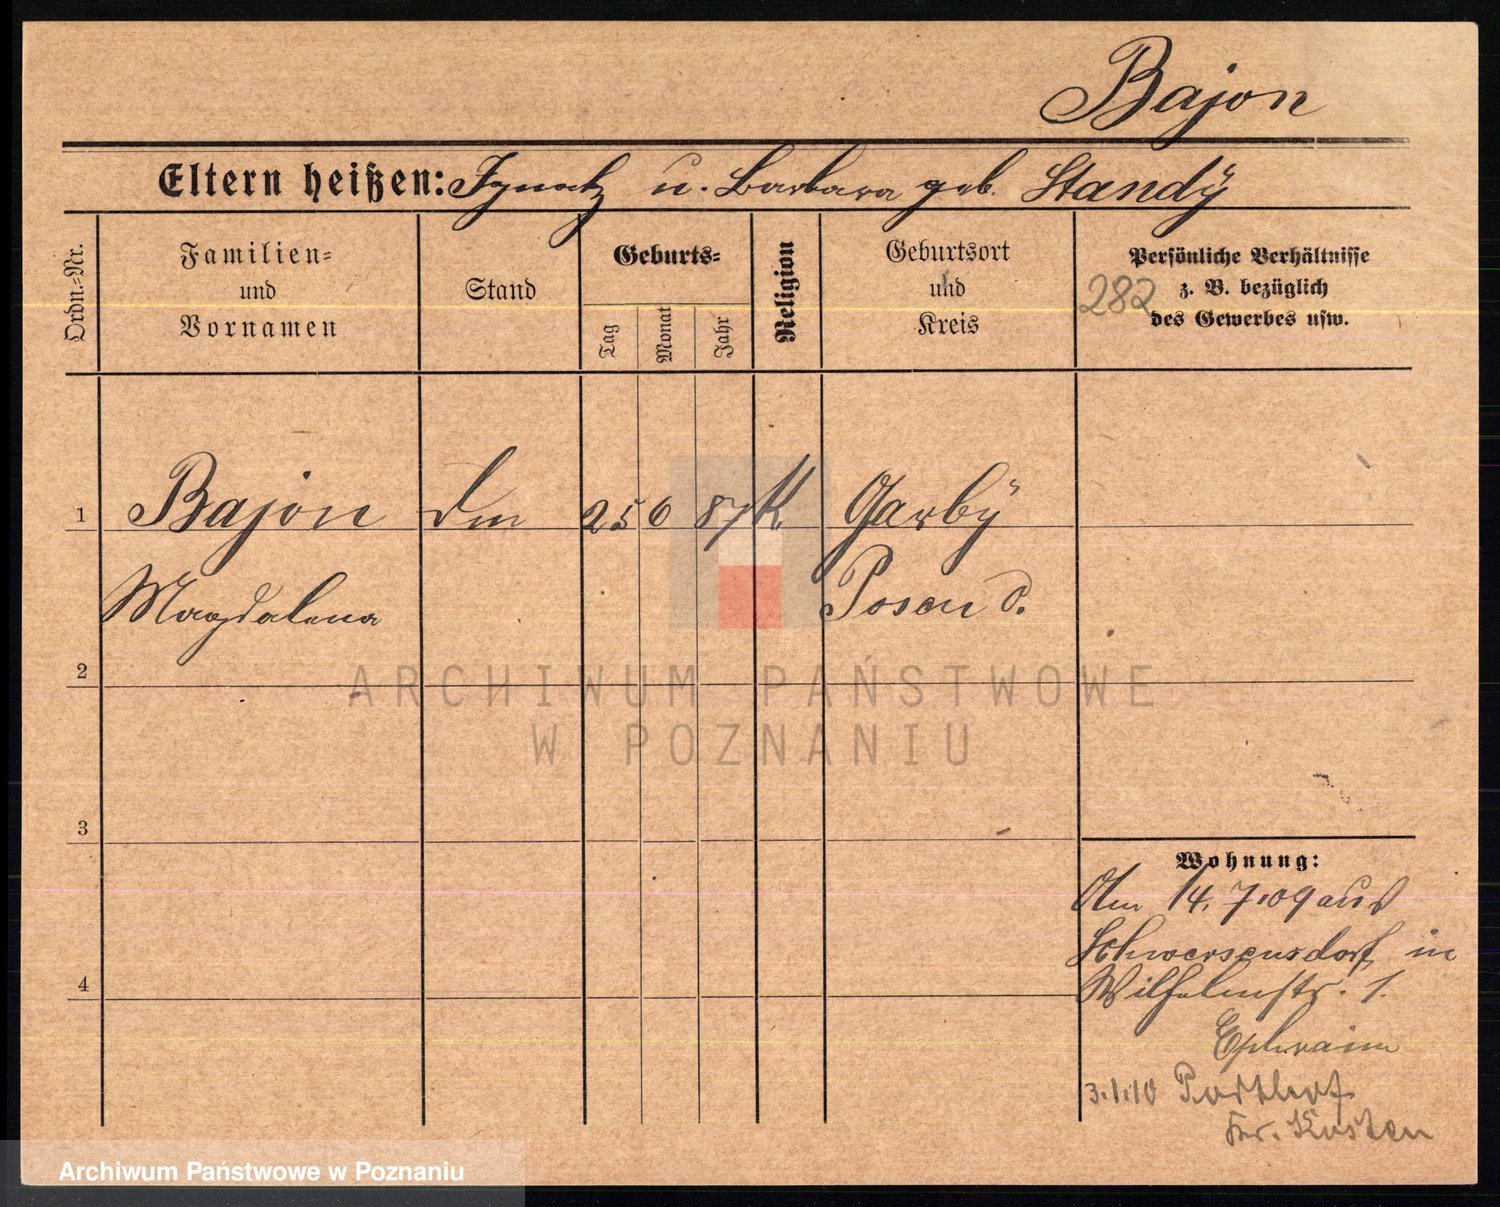 Bajon
Eltern heißen: Ignatz u. Barbara geb. Standÿ
Ordn.=Nr.
Familien=
und
Vornamen
Stand
Geburts=
Tag
Monat
Jahr
Religion
Geburtsort
und
Kreis
Persönliche Verhältnisse
z. B. bezüglich
des Gewerbes usw.
282
1 Bajon 25 6 87 K. Garbÿ
Magdalena Posen O.
2
3
4
Wohnung:
Am 14.7.09 aus
Schwersensdorf in
Wilhelmstr. 1.
Ephraim
3.1.10
Kr. Kosten
ARCHIWUM PAŃSTWOWE
W POZNANIU
Archiwum Państwowe w Poznaniu